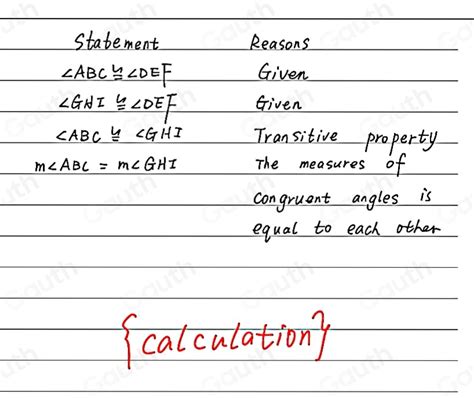 Statement Reasons
∠ABC ≅ ∠DEF Given
∠GHI ≅ ∠DEF Given
∠ABC ≅ ∠GHI Transitive property
m∠ABC = m∠GHI The measures of
congruent angles is
equal to each other
{calculation}